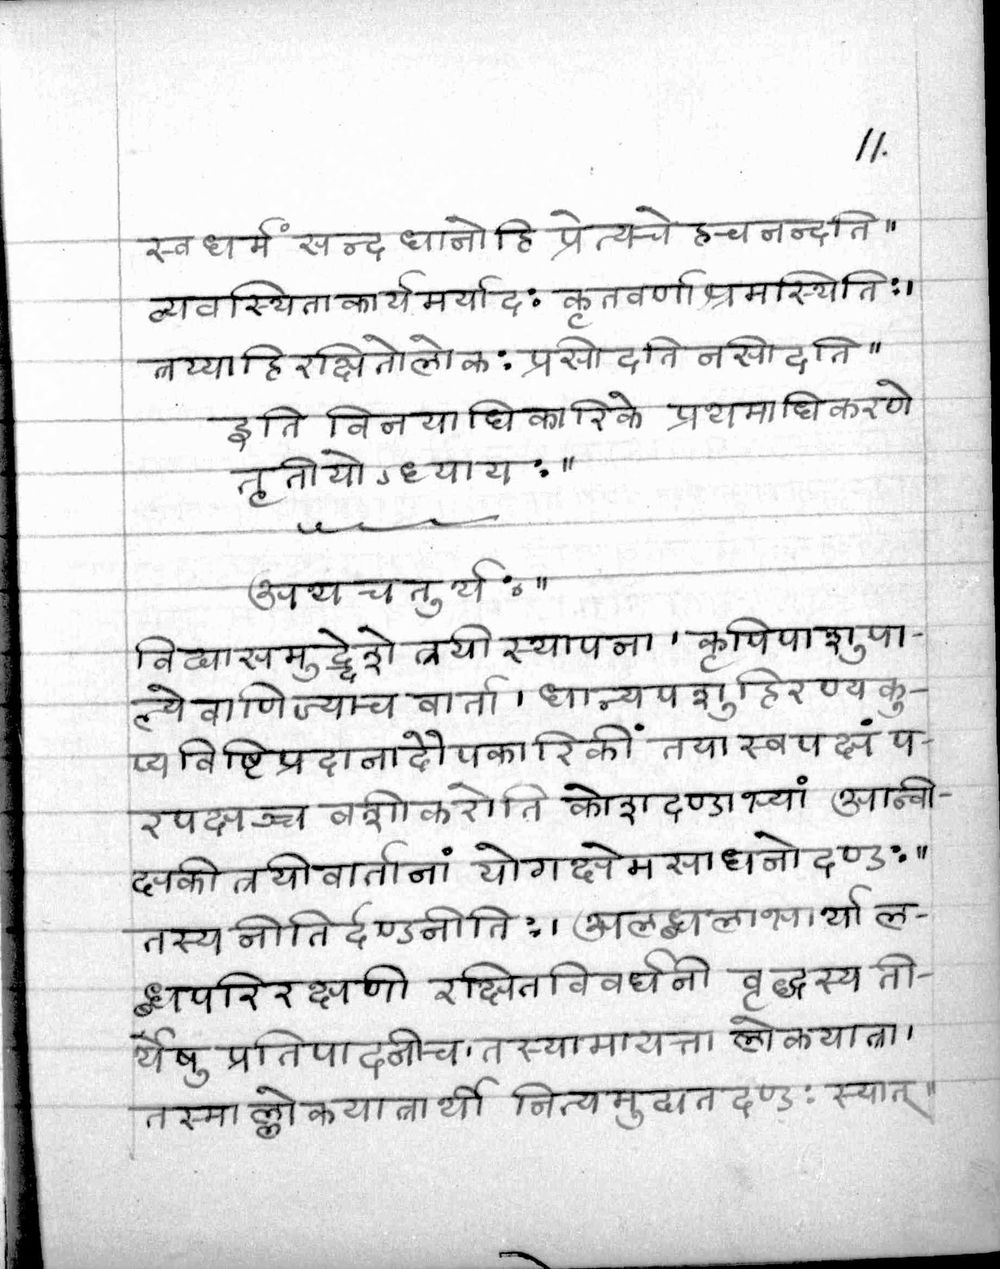 11.
स्वधर्मं सन्दधानोहि प्रेत्यचेहचनन्दति॥
व्यवस्थिताकार्यमर्यादः कृतवर्णाश्रमस्थितिः।
त्रय्याहिरक्षितोलोकः प्रसीदति नसीदति॥
इति विनयाधिकारिके प्रथमाधिकरणे
तृतीयोऽध्यायः॥
अथ चतुर्थः॥
विद्यासमुद्देशे त्रयीस्थापना। कृषिपाशुपा-
ल्येवाणिज्याच वार्ता। धान्यपशुहिरण्यकु-
प्यविष्टिप्रदानादौपकारिकीं तया स्वपक्षं प-
रपक्षञ्च वशीकरोति कोशदण्डाभ्यां आन्वी-
क्षकीत्रयीवार्तानां योगक्षेमसाधनोदण्डः॥
तस्य नीतिर्दण्डनीतिः। अलब्धलाभार्था ल-
ब्धपरिरक्षणी रक्षितविवर्धनी वृद्धस्य ती-
र्थेषु प्रतिपादनीच। तस्यामायत्ता लोकयात्रा।
तस्माल्लोकयात्रार्थी नित्यमुद्यतदण्डः स्यात्॥